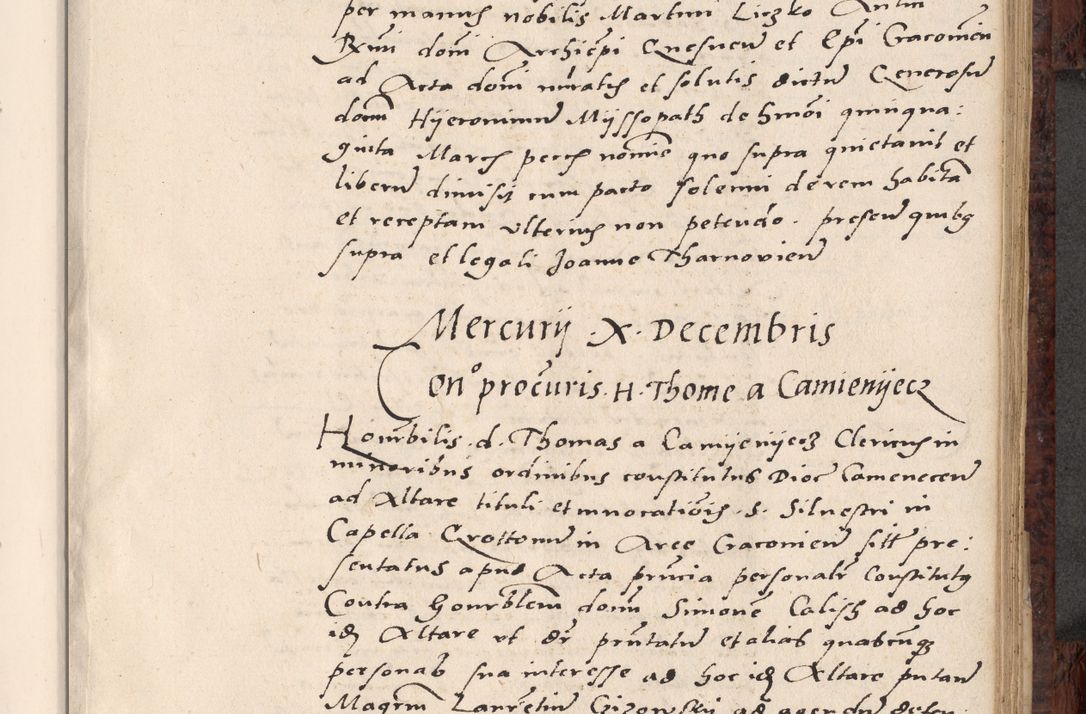 per manus nobilis Martini Liczko
Rmi domi Archiepi Gnesnen et Epi Cracovien
ad Acta domi nrātis et solutis dictum Generosum
domm Hyeronimum Myssopath de hmoi quinqua:
ginta March pecch nomine quo supra quietavit et
liberum dimisit cum pacto solenni de rem habitam
et receptam ulterius non petendo. presen quibg
supra et legali Joanne Tharnovien
Mercurij .X. Decembris
Con⁰ procuris. H. Thome a Camienyecz
Honrbilis .d. Thomas a Camyenyecz Clericus in
minoribus ordinibus constitutus Dioc Camenecen
ad Altare tituli et innocationis .S. Silvestri in
Capella Grottonum in Arce Cracovien sitt pre:
sentatus apud Acta pruncia personalr Constitutg
Contra Honrblem domm Simone Calish ad hoc
id Altare ut dr prntatum et alias quascunq
personas sua interesse ad hoc id Altare putan
Magrm Laurētium Gizowskij ad agendum defen: